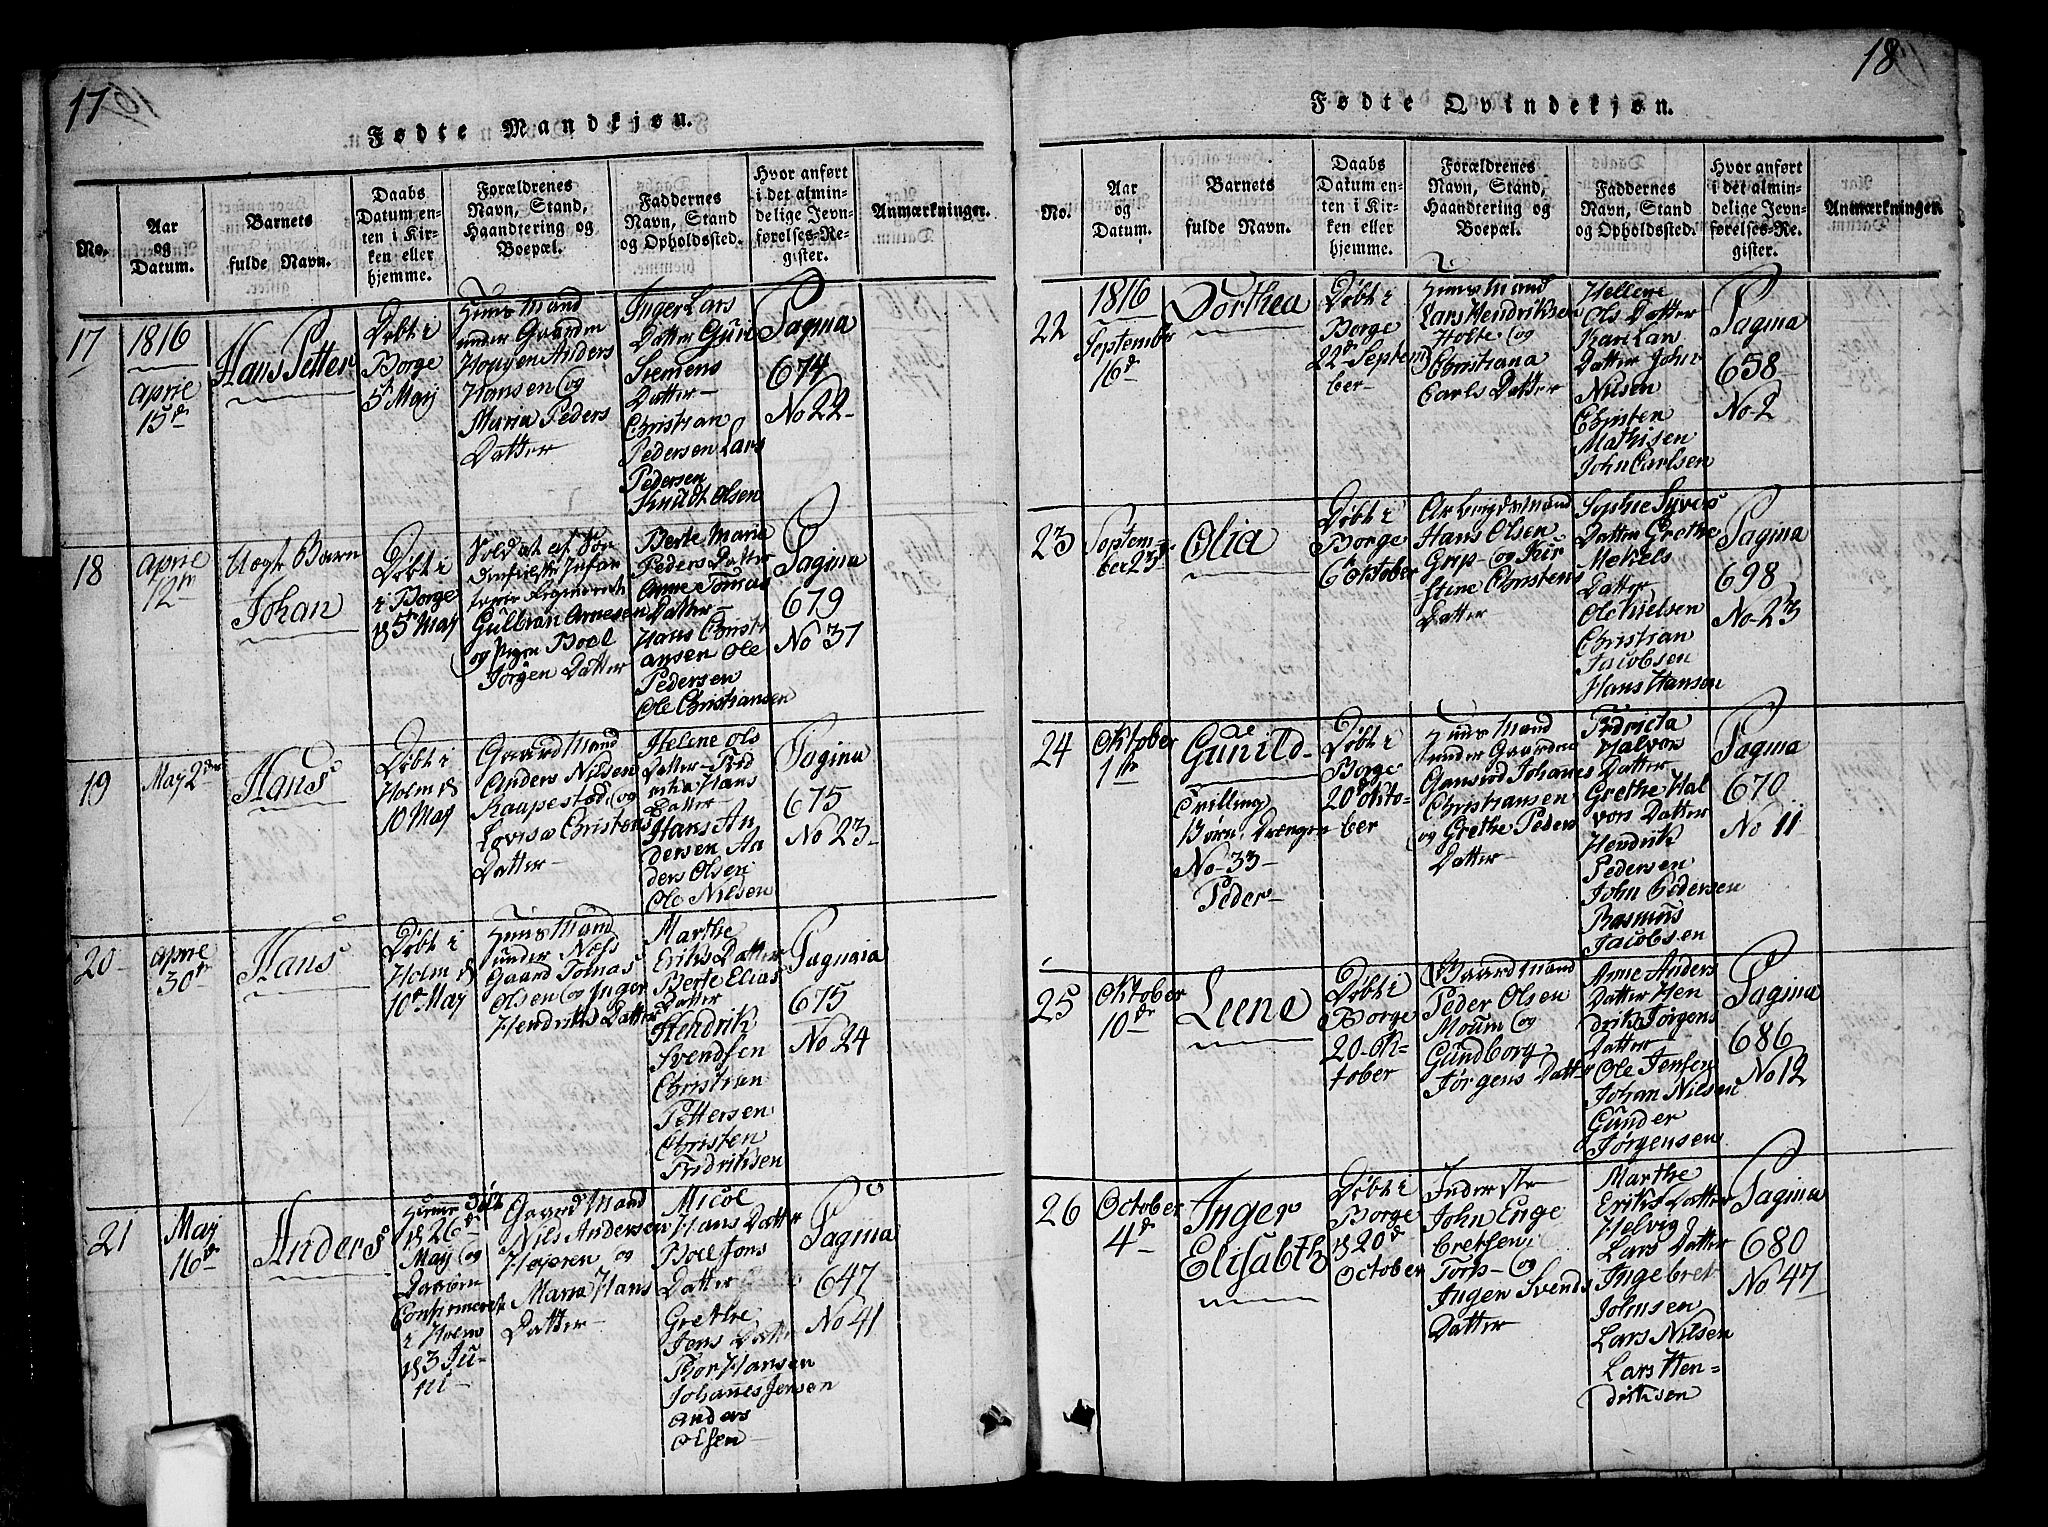 17
Fødte Mandkjøn.
No.
Aar
og
Datum.
Barnets
fulde Navn.
Daabs
Datum en-
ten i Kir-
ken eller
hjemme.
Forældrenes
Navn, Stand,
Haandtering og
Boepæl.
Faddernes
Navn, Stand
og Opholdssted.
Hvor anført
i det almin-
delige Jevn-
førelses-Re-
gister.
Anmærkninger.
17
1816
April
15de
Hans Petter
Døbt i
Borge
5te Maij
Huusmand
under Gaarden
Hougen Anders
Hansen og
Maria Peders
Datter
Inger Lars
Datter Gun
Siemens
Datter
Christian
Pedersen Lars
Pedersen
Knudt Olsen
Pagina
674
No 22
18
April
12te
Uægte Barn
Johan
Døbt i
i Borge
d 5te Maij
Soldat af
Infan
terie Regimente
Gulbran Arnesen
og Pigen Boel
Jørgen Datter
Berte Marie
Peders Datter
Anne Tomas
Datter
Hans Christi
ansen Ole
Pedersen
Ole Christiansen
Pagina
679
No 37
19
Maj 2den
Hans
Døbt i
Holm d
10 Maij
Gaardmand
Anders Nilsen
Raapestad og
Lovisæ Christens
Datter
Helene Ols
Datter Frid
rika Hans
Datter
Hans An
dersen An
ders Olsen
Ole Nilsen
Pagina
675
No 23
20
April
30te
Hans
Døbt i
Holm d
10de Maij
Huusmand
under Næss
Gaard Tomas
Olsen og Inger
Hendriks Datter
Marthe
Eriks Datter
Berte Elias
Datter
Hendrik
Svendsen
Christian
Pettersen
Christen
Fridriksen
Pagnaia
675
No 24
21
Maj
16de
Anders
d 26de
Maij og
Daaben
Confirmeret
i Holm
d 3 Ju-
ni
Gaardmand
Nils Andersen
Høieren og
Maria Hans
Datter
Micol
Hans Datter
Boel Jons
Datter
Grethe
Jens Datter
Tor Hansen
Johanes Jensen
Anders
Olsen
Pagina
647
No 41
18
Fødte Qvindekjøn.
No.
Aar
og
Datum.
Barnets
fulde Navn.
Daabs
Datum en-
ten i Kir-
ken eller
hjemme.
Forældrenes
Navn, Stand,
Haandtering og
Boepæl.
Faddernes
Navn, Stand
og Opholdssted.
Hvor anført
i det almin-
delige Jevn-
førelses-Re-
gister.
Anmærkninger
22
1816
September
16de
Dorthea
Døbt i
Borge
22de Septem
ber
Huusmand
Lars Hendriksen
Holte og
Christiana
Carls Datter
Hellene
Ols Datter
Kari Lars
Datter John
Nilsen
Christen
Mathisen
John Carlsen
Pagina
658
No 2
23
Septem-
ber 23de
Olia
Døbt i
Borge
6te Oktober
Arbeydsmand
Hans Olsen
Grip og Kir
stine Christens
Datter
Sophie Syvers
Datter Grethe
Mekels
Datter
Ole Nielsen
Christian
Jacobsen
Hans Hansen
Pagina
698
No 23
24
Oktober
1ste
Gunild
Tvilling
Børn, Drengen
No 33
Peder
Døbt i
Borge
20de Okto-
ber
Huusmand
under Gaarden
Gansrød Johanes
Christiansen
og Grethe Peders
Datter
Fridricka
Halvors
Datter
Grethe Hal
vors Datter
Hendrik
Pedersen
John Pedersen
Rasmus
Jacobsen
Pagina
670
No 11
25
Oktober
10de
Leene
Døbt i
Borge
20 Ok-
tober
Gaardmand
Peder Olsen
Moum og
Gundborg
Jørgens Datter
Arne Anders
Datter Hen
driks Jørgens
Datter
Ole Jensen
Johan Nilsen
Gunder
Jørgensen
Pagina
686
No 12
26
October
4de
Inger
Elisabeth
Døbt i
Borge
d 20de
October
Inderste
John Enge
bretsen i
Torp og
Inger Svends
Datter
Marthe
Eriks Datter
Helvig
Lars Datter
Ingebret
Johnsen
Lars Nilsen
Lars Hen-
driksen
Pagina
680
No 47